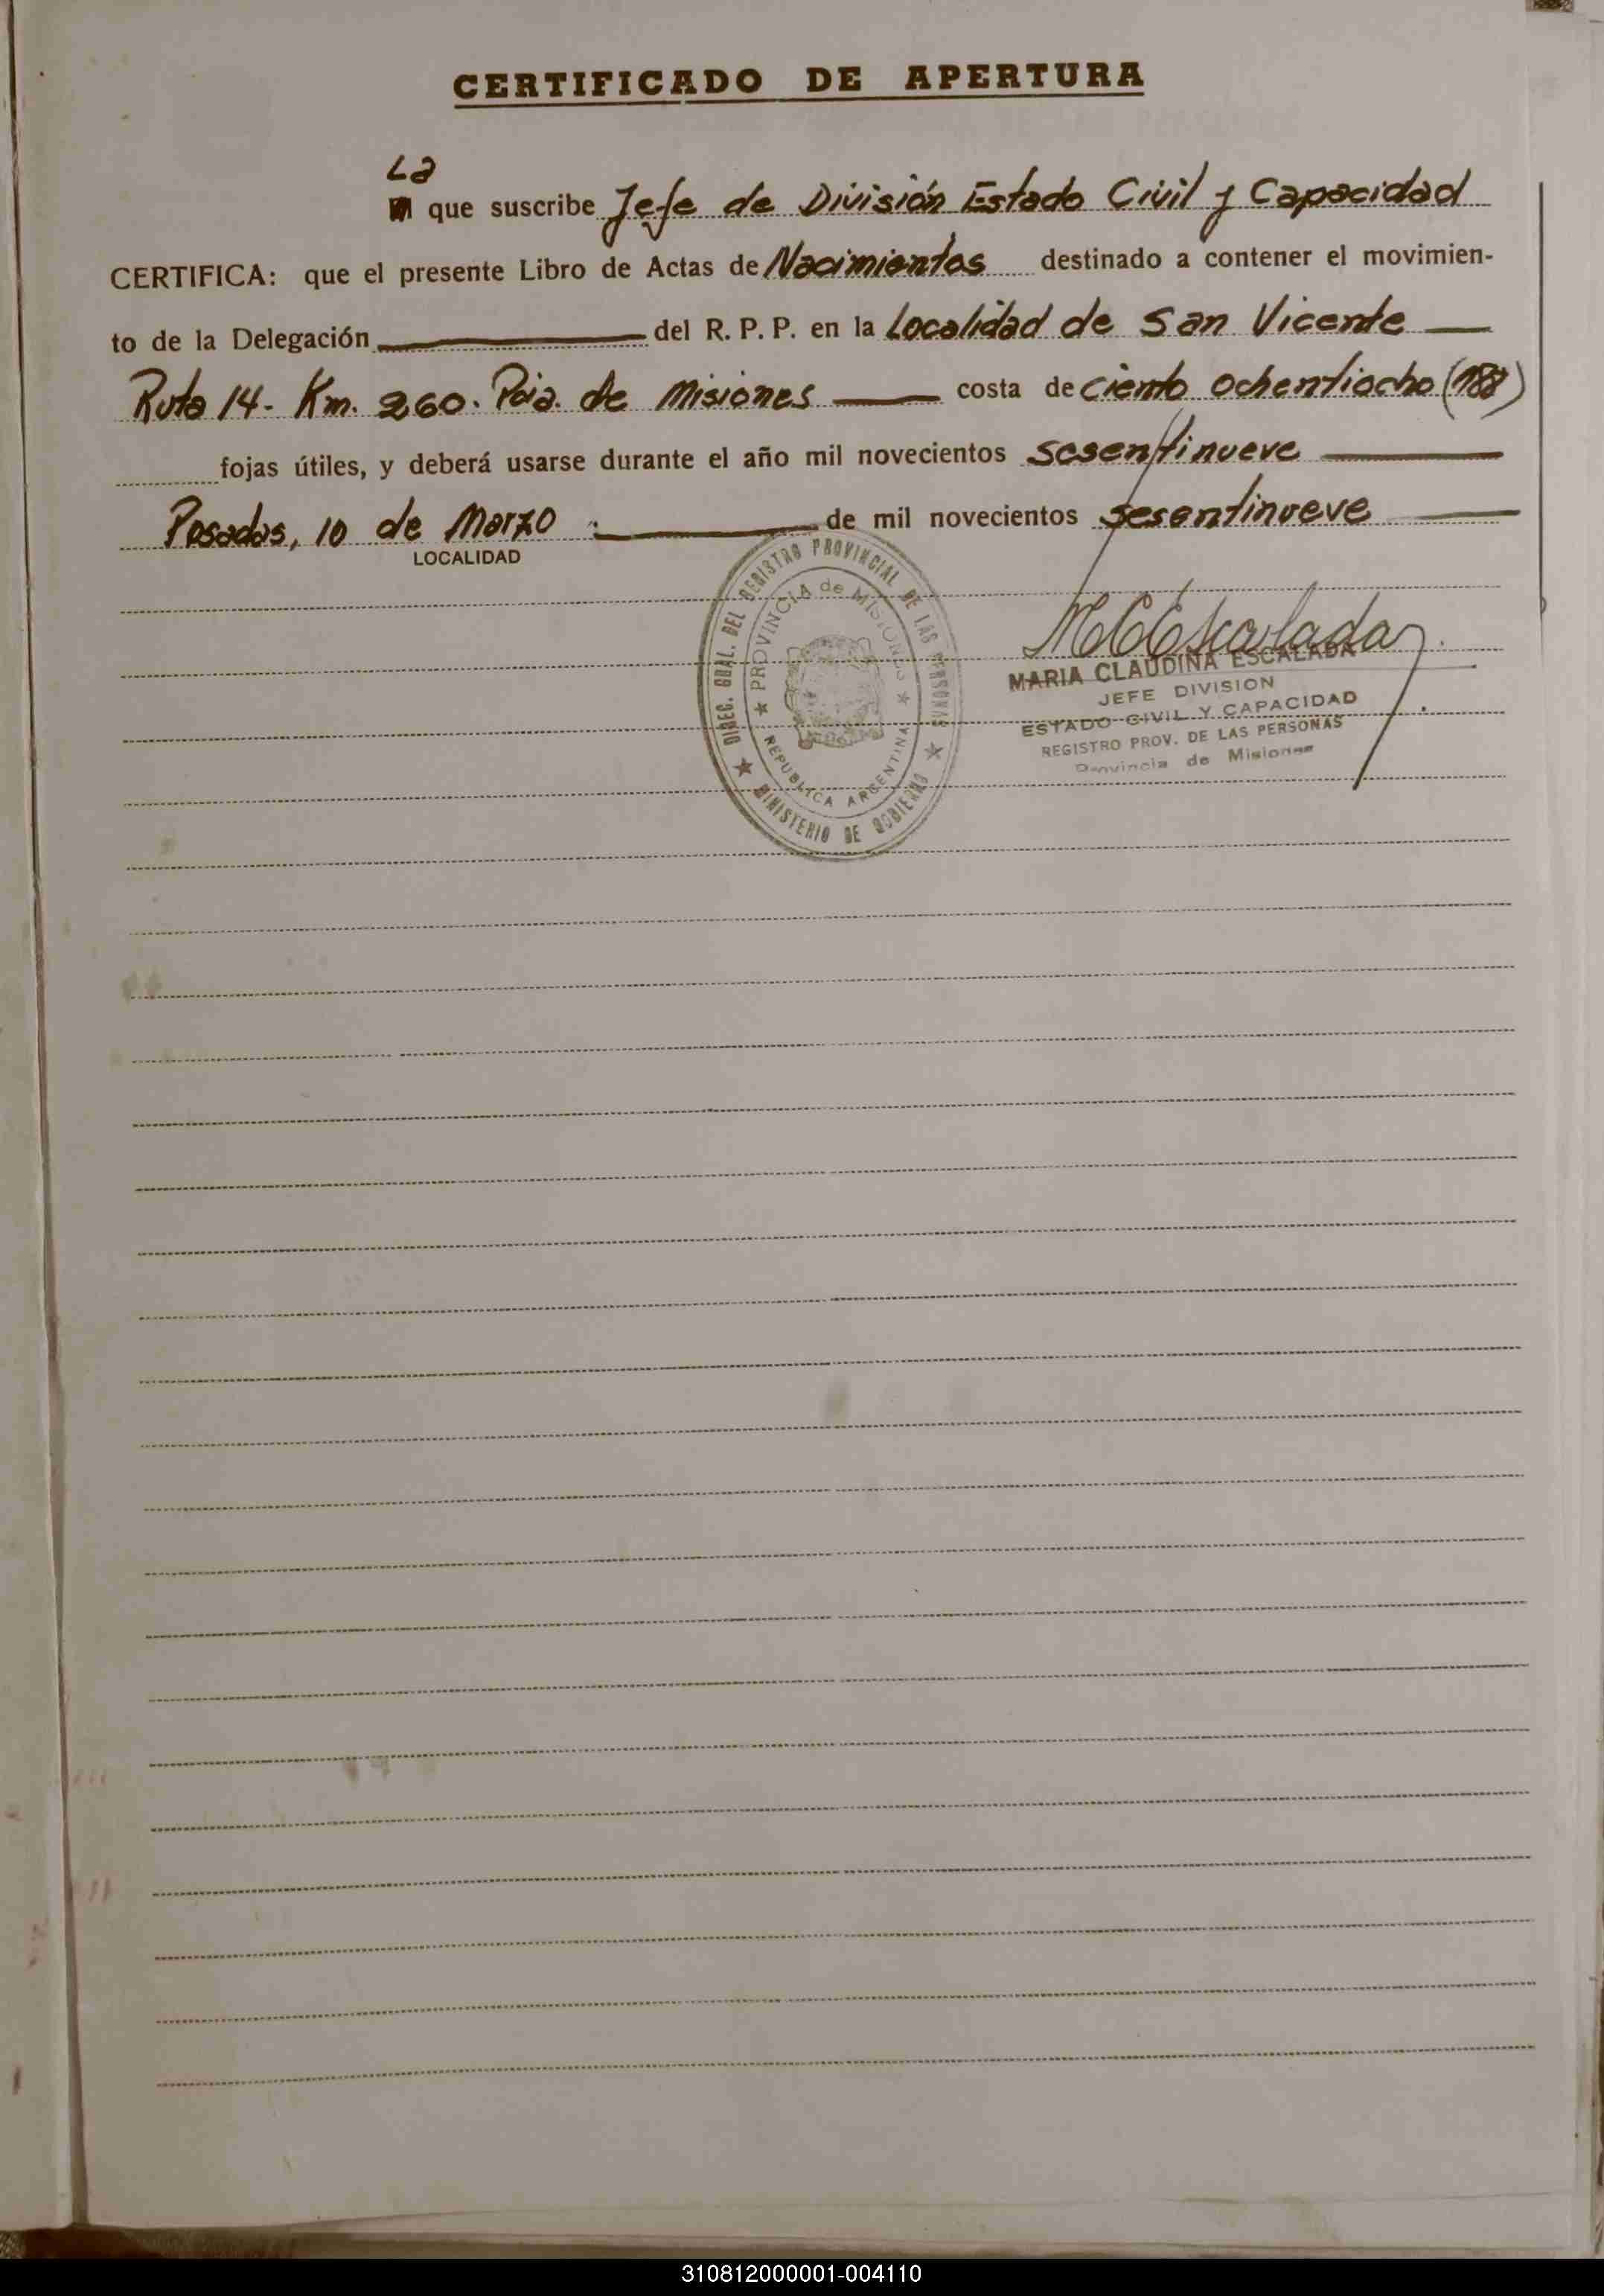 CERTIFICADO DE APERTURA
La
que suscribe Jefe de División Estado Civil y Capacidad
CERTIFICA: que el presente Libro de Actas de Nacimientos destinado a contener el movimien-
to de la Delegación del R. P. P. en la Localidad de San Vicente
Ruta 14- Km. 260. Pcia. de Misiones costa de ciento ochentiocho (188)
fojas útiles, y deberá usarse durante el año mil novecientos sesentinueve
Posadas, 10 de Marzo de mil novecientos sesentinueve
LOCALIDAD
DIREC. GRAL. DEL REGISTRO PROVINCIAL DE LAS PERSONAS
PROVINCIA de MISIONES
REPUBLICA ARGENTINA
MINISTERIO DE GOBIERNO
MCEscalada
MARIA CLAUDINA ESCALADA
JEFE DIVISION
ESTADO CIVIL Y CAPACIDAD
REGISTRO PROV. DE LAS PERSONAS
Provincia de Misiones
310812000001-004110